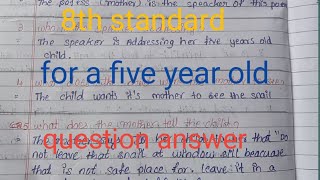 The poetess (mother) is the speacker of this poem
The speaker is addressing her five years old
child.
8th standard
for a five year old
= The child wants it's mother to see the snail
what does the mother tell the child
question answer
not leave that snail at window sill beacuase
that is not safe place for, leave it in a